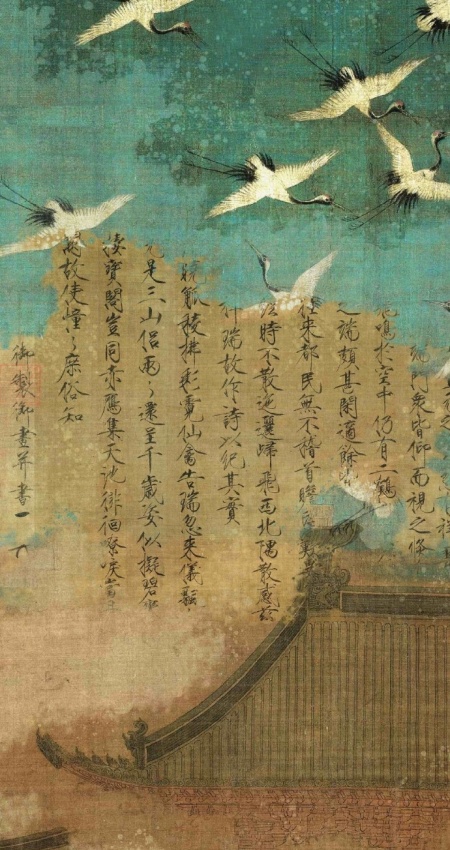 端門眾皆仰而視之倏
鳴於空中仍有二鶴
之端頗甚閑適餘
往來都民無不稽首瞻
經時不散迤邐歸飛西北隅散感茲
祥瑞故作詩以紀其實
曉觚稜拂彩霓仙禽告瑞忽來儀飄
元是三山侶兩〻還呈千歲姿似擬碧
棲寶閣豈同赤雁集天池徘徊嘹唳當
闕故使憧〻庶俗知
御製御畫并書